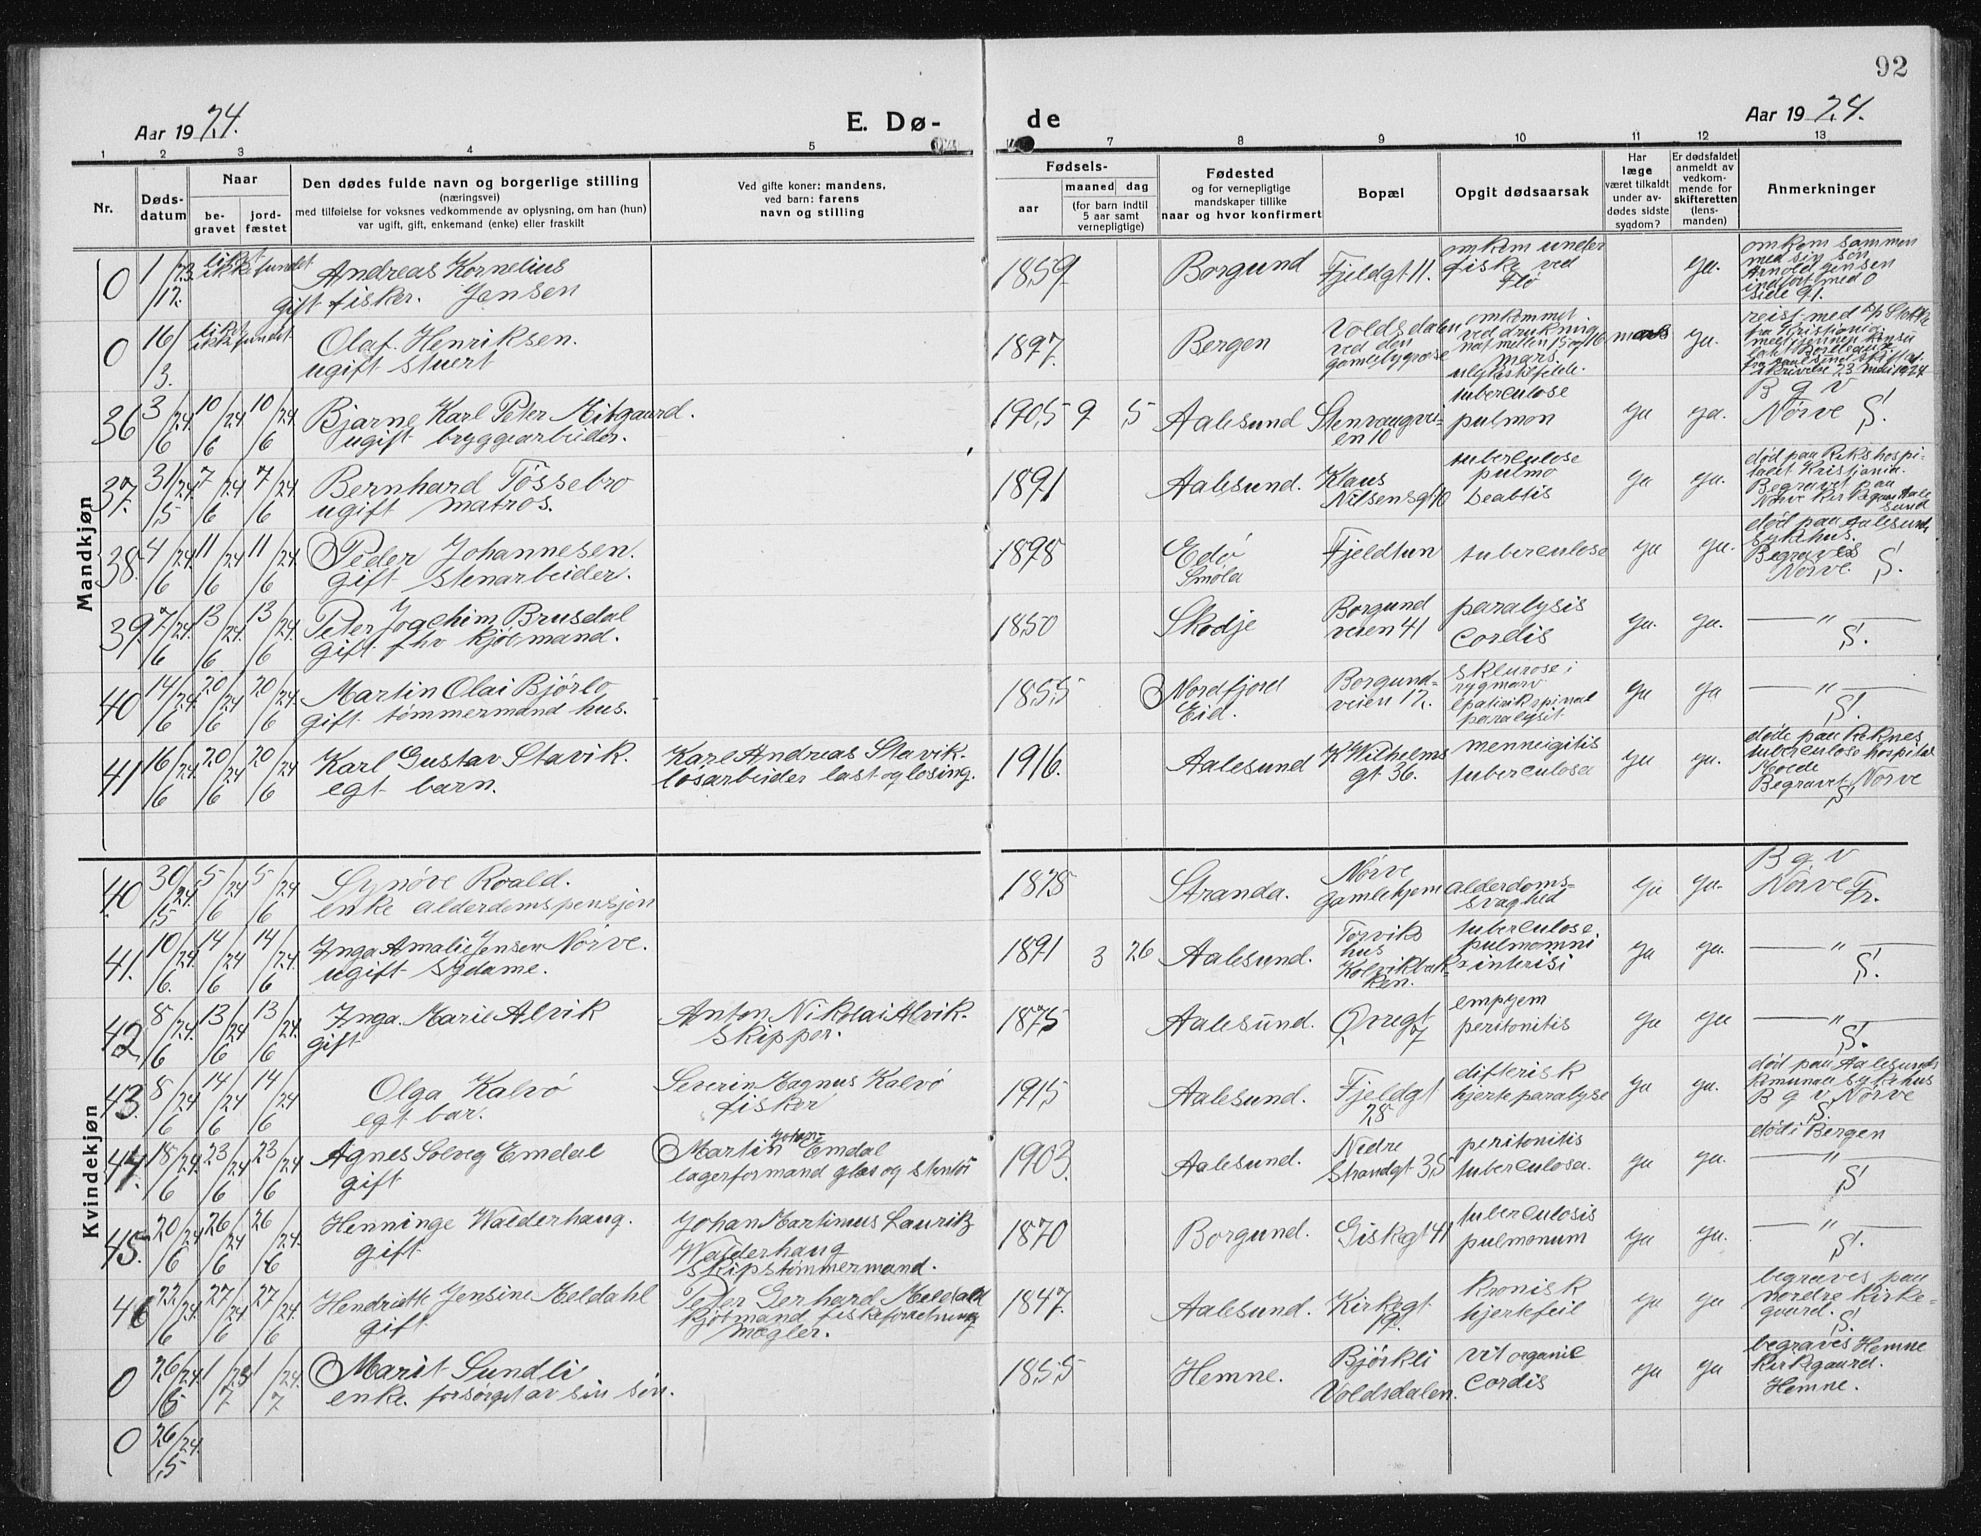 92
Aar 1924.
E. Dø-
de
Aar 1924.
1 2 3 4 5
7 8 9 10 11 12 13
Nr.
Døds-
datum
Naar
be-
gravet
jord-
fæstet
Den dødes fulde navn og borgerlige stilling
(næringsvei)
med tilføielse for voksnes vedkommende av oplysning, om han (hun)
var ugift, gift, enkemand (enke) eller fraskilt
Ved gifte koner: mandens,
ved barn: farens
navn og stilling
Fødsels-
aar
maaned
dag
(for barn indtil
5 aar samt
vernepligtige)
Fødested
og for vernepligtige
mandskaper tillike
naar og hvor konfirmert
Bopæl
Opgit dødsaarsak
Har
læge
været tilkaldt
under av-
dødes sidste
sygdom?
Er dødsfaldet
anmeldt av
vedkom-
mende for
skifteretten
(lens-
manden)
Anmerkninger
Mandkjøn
0 1/12 23. liket ikke fundet
Andreas Kornelius
Jensen
gift fisker.
1859 Borgund Fjeldgt 11.
omkom under
fiske ved
Flø
ya.
omkom sammen
med sin søn
Arnold Jensen
indført med 0
side 91.
0 16/3. liket ikke fundet
Olaf Henriksen.
ugift stuert
1897. Bergen
Voldsdalen
ved den
gamle bygrænse
omkommet
ved drukning
nat mellem 15 og 16 mars
ulykkestilfelde.
ya.
36 3/6 24. 10/6 24 10/6 24.
Bjarne Karl Peter Mitgaard.
ugift bryggearbeider.
1905 9 5 Aalesund
Stenvaagvei-
en 10
tuberculose
pulmon
ya ya.
B g v
Nørve S.
37. 31/5 24. 7/6 24 7/6 24.
Bernhard Tøssebro
ugift matros.
1891 Aalesund.
Klaus
Nilsensgt 10
tuberculose
pulmo
Deabtis
ya ya.
død paa Rikshospi-
talet Kristiania.
Begravet paa
Nørve kirkegaard Aale
sund
38. 4/6 24. 11/6 24 11/6 24.
Peder Johannesen.
gift stenarbeider.
1898
Edø
Smøla
Fjeldtun tuberculose ya ya.
død paa Aalesunds
sykehus.
Begraves
Nørve. S.
39. 7/6 24. 13/6 24. 13/6 24.
Peter Joachim Brusdal
gift fhv kjøbmand.
1850 Skodje
Borgund
veien 41
paralysis
cordis
ya. ya. — " —
S.
40 14/6 24. 20/6 24 20/6 24.
Martin Olai Bjørlo
gift tømmermand hus.
1855
Nordfjord
Eid.
Borgund-
veien 17.
sklerose i
rygmarv
spinal
paralysit
ya ya — " —
S.
41 16/6 24. 20/6 24 20/6 24
Karl Gustav Stavik.
egt barn.
Karl Andreas Stavik.
løsarbeider last og losing.
1916. Aalesund
K Wilhelms
gt 36.
menneigitis
tuberculosa
ya ya.
døde paa Reknes
tuberculose hospital
Molde
Begravet Nørve
S.
Kvindekjøn
40. 30/5 24. 5/6 24 5/6 24
Synøve Roald.
enke alderdomspensjon
1875 Stranda.
Nørve
gamlehjem
alderdoms-
svaghed
ya ya.
B g v
Nørve Fr.
41. 10/6. 24. 14/6 24 14/6 24.
Inga Amalie Jensen Nørve.
ugift sydame.
1891 3 26 Aalesund.
Torviks
hus
Kolvikbak-
ken.
tuberculose.
pulmomni
interisi
ya ya. — " —
S.
42 8/6 24. 13/6 24 13/6 24.
Inga Marie Alvik
gift
Anton Nikolai Alvik.
Skipper.
1875 Aalesund.
Øvregt
7
empyem
peritonitis
ya ya — " —
S.
43. 8/6 24 14/6 24 14/6 24
Olga Kalvø
egt bar.
Severin Magnus Kalvø
fisker
1915 Aalesund.
Fjeldgt
28
difterisk
hjerteparalyse
ya ya.
død paa Aalesunds
komunale sykehus
B g v Nørve
S.
44. 18/6 24. 23/6 24 23/6 24
Agnes Solveig Emdal
gift
Martin Johan Emdal
lagerformand glas og stentøi
1903. Aalesund.
Nedre
Strandgt 35
peritonitis
tuberculosa.
ya ya.
død i Bergen
— " —
S
45. 20/6 24 26/6 24 26/6 24.
Henninge Walderhaug.
gift
Johan Martinus Laurits
Walderhaug
skipstømmermand.
1870 Borgund. Giskegt 41
tuberculosis
pulmonum
ya ya. — " —
S.
46 22/6 24. 27/6 24 27/6 24.
Hendriette Jensine Meldahl
gift
Peter Gerhard Meldahl
kjøbmand fiskeforretning
mægler.
1847. Aalesund. Kirkegt
kronisk
hjertefeil
ya ya
begraves paa
nordre kirke-
gaard. S.
0 26/6 24 1/7 24 1/7 24.
Marit Sundli
enke. forsørget av sin søn.
1855 Hemne.
Bjørkli
Voldsdalen.
vit organic
cordis
ya ya
begraves Hemne
Kirkegaard.
Hemne.
0 26/5 24.